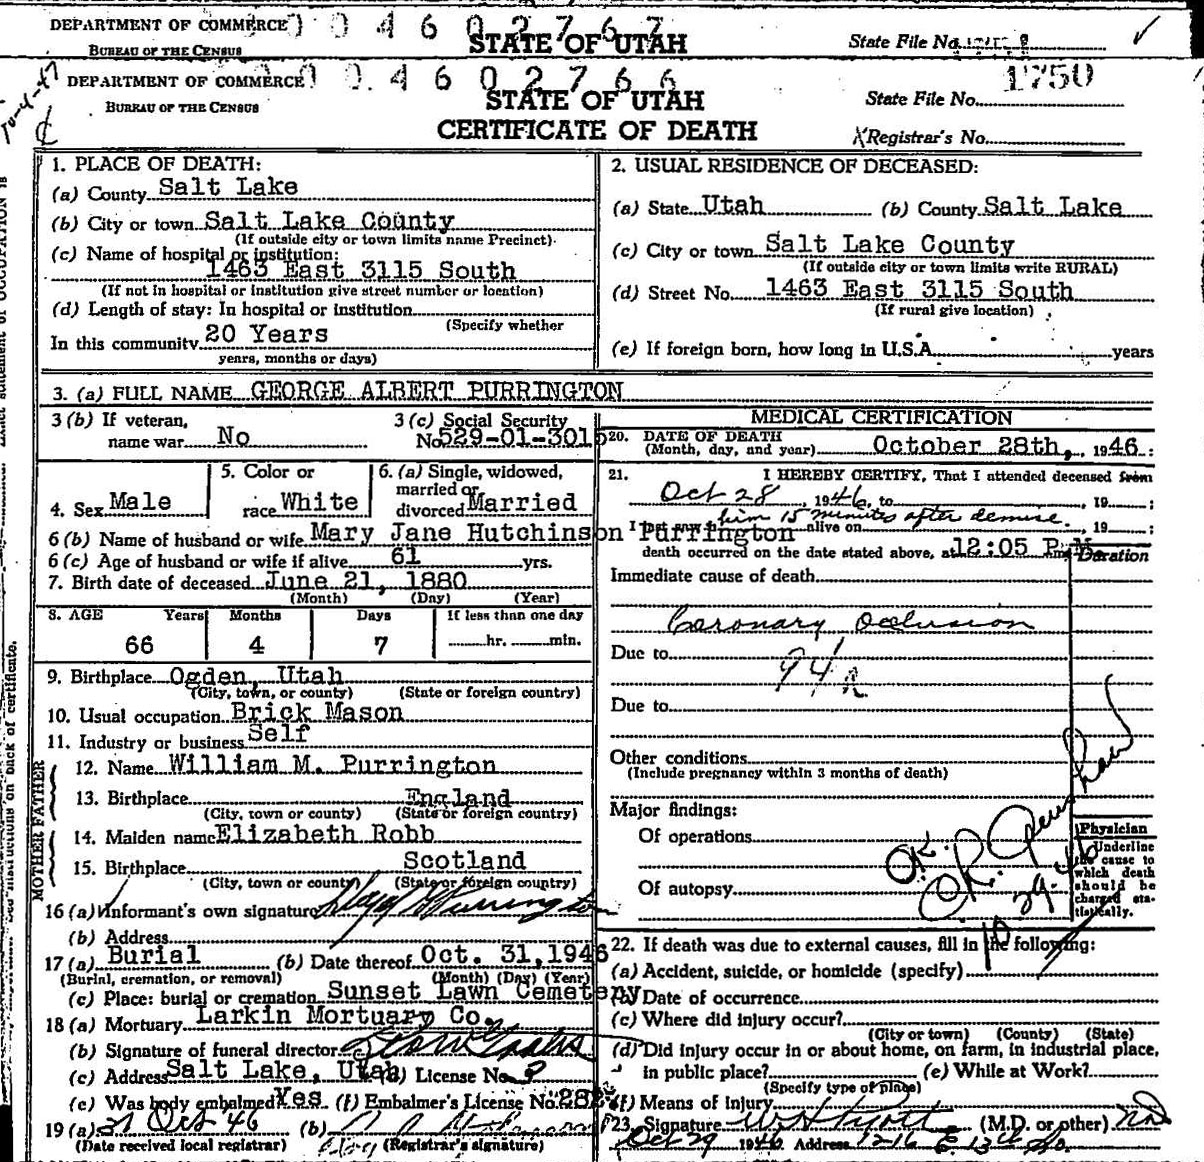 DEPARTMENT OF COMMERCE 0 0 4 6 0 2 7 6 7
BUREAU OF THE CENSUS STATE OF UTAH State File No.
10-4-47 DEPARTMENT OF COMMERCE 0 0 4 6 0 2 7 6 6 1750
BUREAU OF THE CENSUS STATE OF UTAH State File No.
CERTIFICATE OF DEATH Registrar's No.
1. PLACE OF DEATH:
(a) County Salt Lake
(b) City or town Salt Lake County
(If outside city or town limits name Precinct)
(c) Name of hospital or institution:
1463 East 3115 South
(If not in hospital or institution give street number or location)
(d) Length of stay: In hospital or institution
(Specify whether
In this community 20 Years
years, months or days)
2. USUAL RESIDENCE OF DECEASED:
(a) State Utah (b) County Salt Lake
(c) City or town Salt Lake County
(If outside city or town limits write RURAL)
(d) Street No. 1463 East 3115 South
(If rural give location)
(e) If foreign born, how long in U.S.A. years
3. (a) FULL NAME GEORGE ALBERT PURRINGTON
3 (b) If veteran, 3 (c) Social Security
name war No No. 529-01-3015
4. Sex Male
5. Color or
race White
6. (a) Single, widowed,
married or
divorced Married
6 (b) Name of husband or wife Mary Jane Hutchinson Purrington
6 (c) Age of husband or wife if alive 61 yrs.
7. Birth date of deceased June 21, 1880
(Month) (Day) (Year)
8. AGE Years Months Days If less than one day
66 4 7 hr. min.
9. Birthplace Ogden, Utah
(City, town, or county) (State or foreign country)
10. Usual occupation Brick Mason
11. Industry or business Self
FATHER
12. Name William M. Purrington
13. Birthplace England
(City, town or county) (State or foreign country)
MOTHER
14. Maiden name Elizabeth Robb
15. Birthplace Scotland
(City, town or county) (State or foreign country)
16 (a) Informant's own signature Purrington
(b) Address
17 (a) Burial (b) Date thereof Oct. 31, 1946
(Burial, cremation, or removal) (Month) (Day) (Year)
(c) Place: burial or cremation Sunset Lawn Cemetery
18 (a) Mortuary Larkin Mortuary Co.
(b) Signature of funeral director
(c) Address Salt Lake, Utah (d) License No.
(e) Was body embalmed? Yes (f) Embalmer's License No. 282
19 (a) 31 Oct 46 (b)
(Date received local registrar) (Registrar's signature)
MEDICAL CERTIFICATION
20. DATE OF DEATH
(Month, day, and year) October 28th, 1946
21. I HEREBY CERTIFY, That I attended deceased from
Oct 28, 1946, to , 19 ;
I last saw h him 15 minutes after demise. alive on , 19 ;
death occurred on the date stated above, at 12:05 P.M.
Duration
Immediate cause of death
Coronary Occlusion
Due to
94a
Due to
Other conditions
(Include pregnancy within 3 months of death)
Major findings:
Of operations
Of autopsy
O.K.
10 29-46
Physician
Underline
the cause to
which death
should be
charged sta-
tistically.
22. If death was due to external causes, fill in the following:
(a) Accident, suicide, or homicide (specify)
(b) Date of occurrence
(c) Where did injury occur?
(City or town) (County) (State)
(d) Did injury occur in or about home, on farm, in industrial place,
in public place? (e) While at Work?
(Specify type of place)
(f) Means of Injury
23. Signature (M.D. or other) MD
Oct 29 1946 Address 1216 E. 13th So.